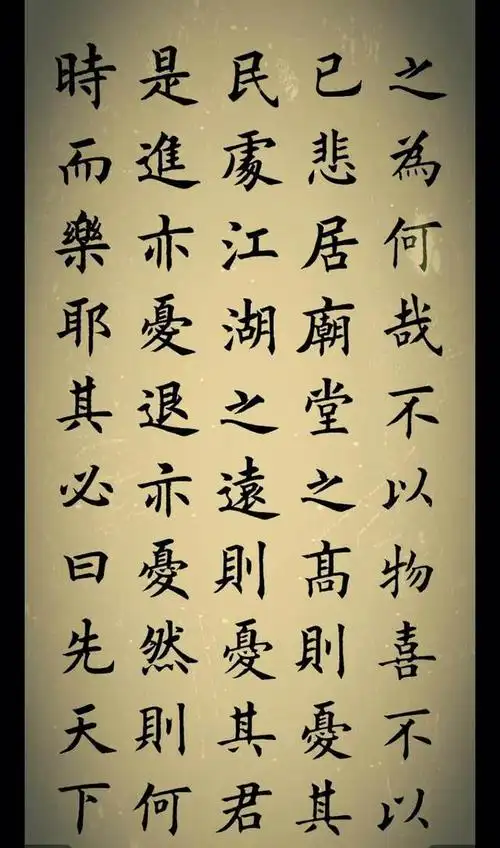 之為何哉不以物喜不以
已悲居廟堂之高則憂其
民處江湖之遠則憂其君
是進亦憂退亦憂然則何
時而樂耶其必曰先天下